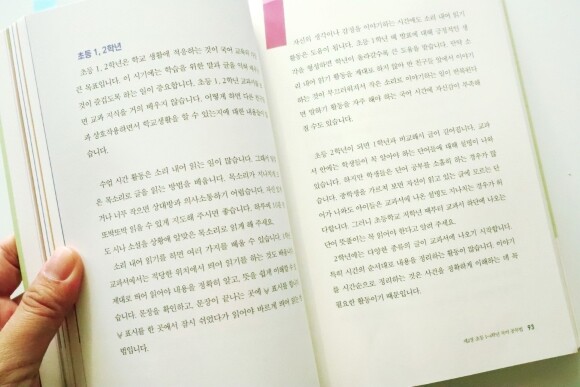 초등 1, 2학년
초등 1, 2학년은 학교 생활에 적응하는 것이 국어 교육의
큰 목표입니다. 이 시기에는 학습을 위한 말과 글을 익혀
것이 즐겁도록 하는 일이 중요합니다. 초등 1, 2학년 교과서를
면 교과 지식을 거의 배우지 않습니다. 어떻게 하면 다른 친구들
과 상호작용하면서 학교생활을 할 수 있는지에 대한 내용들이
습니다.
수업 시간 활동은 소리 내어 읽는 일이 많습니다. 그래서 맑
은 목소리로 글을 읽는 방법을 배웁니다. 목소리가 지나치게
거나 너무 작으면 상대방과 의사소통하기 어렵습니다.
또박또박 읽을 수 있게 지도해 주시면 좋습니다. 하루에
도 시나 소설을 상황에 알맞은 목소리로 읽게 해 주세요.
소리 내어 읽기를 하면 여러 가지를 배울 수 있습니다. 1학년
교과서에서는 적당한 위치에서 띄어 읽기를 하는 것도 배웁니다.
제대로 띄어 읽어야 내용을 정확히 알고, 뜻을 쉽게 이해할 수
습니다. 문장을 확인하고, 문장이 끝나는 곳에 ∨ 표시를 합니다.
∨ 표시를 한 곳에서 잠시 쉬었다가 읽어야 바르게 띄어 읽는 방
법입니다.
자신의 생각이나 감정을 이야기하는 시간에도 소리 내어 읽기
활동은 도움이 됩니다. 초등 1학년 때 발표에 대해 긍정적인 생
각을 형성하면 학년이 올라갈수록 큰 도움을 얻습니다. 만약 소
리 내어 읽기 활동을 제대로 하지 않아 반 친구들 앞에서 이야기
하는 것이 부끄러워져서 작은 소리로 이야기하는 일이 반복된다
면 말하기 활동을 자주 해야 하는 국어 시간에 자신감이 부족해
질 수도 있습니다.
초등 2학년이 되면 1학년과 비교해서 글이 길어집니다. 교과
서 안에는 학생들이 꼭 알아야 하는 단어들에 대해 설명이 나와
있습니다. 하지만 학생들은 단어 공부를 소홀히 하는 경우가 많
습니다. 중학생을 가르쳐 보면 자신이 읽고 있는 글에 모르는 단
어가 나와도 아이들은 교과서에 나온 설명도 지나치는 경우가 허
다합니다. 그러니 초등학교 저학년 때부터 교과서 하단에 나오는
단어 뜻풀이는 꼭 읽어야 한다고 알려 주세요.
2학년에는 다양한 종류의 글이 교과서에 나오기 시작합니다.
특히 시간의 순서대로 내용을 정리하는 활동이 많습니다. 이야기
를 시간순으로 정리하는 것은 사건을 정확하게 이해하는 데 꼭
필요한 활동이기 때문입니다.
93